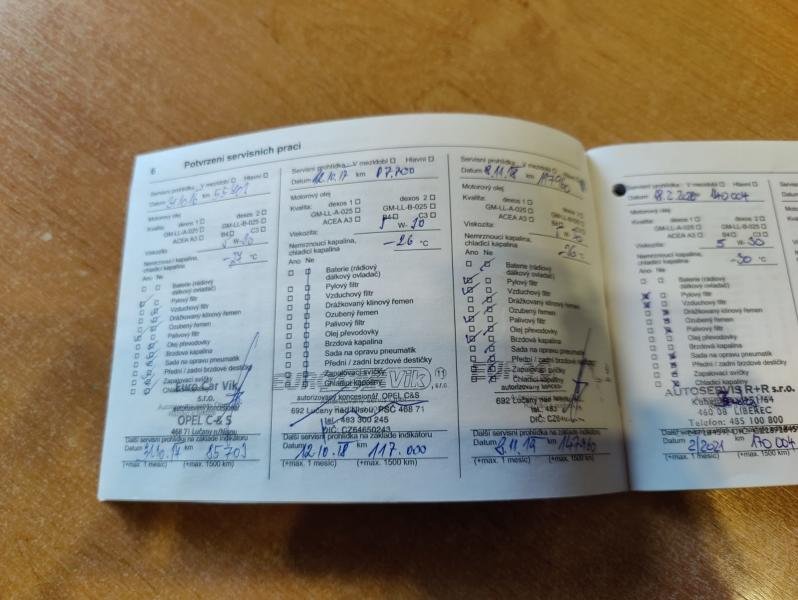 6 Potvrzení servisních prací
Servisní prohlídka V mezidobí Hlavní
Datum 31.10.16 km
Motorový olej
Kvalita: dexos 1 dexos 2
GM-LL-A-025 GM-LL-B-025
ACEA A3 B4 C3
Viskozita: 5 W-30
Nemrznoucí kapalina,
chladicí kapalina °C
Ano Ne
Baterie (rádiový
dálkový ovladač)
Pylový filtr
Vzduchový filtr
Drážkovaný klínový řemen
Ozubený řemen
Palivový filtr
Olej převodovky
Brzdová kapalina
Sada na opravu pneumatik
Přední / zadní brzdové destičky
Zapalovací svíčky
Chladicí kapalina
Euro Car Vik
s.r.o.
autorizovaný koncesionář
OPEL C & S
468 71 Lučany n/Nisou
Další servisní prohlídka na základě indikátoru
Datum 31.10.17 85709
(+max. 1 měsíc) (+max. 1500 km)
Servisní prohlídka V mezidobí Hlavní
Datum 12.10.17 km 87.700
Motorový olej
Kvalita: dexos 1 dexos 2
GM-LL-A-025 GM-LL-B-025
ACEA A3 B4 C3
Viskozita: 5 W-30
Nemrznoucí kapalina,
chladicí kapalina -26 °C
Ano Ne
Baterie (rádiový
dálkový ovladač)
Pylový filtr
Vzduchový filtr
Drážkovaný klínový řemen
Ozubený řemen
Palivový filtr
Olej převodovky
Brzdová kapalina
Sada na opravu pneumatik
Přední / zadní brzdové destičky
Zapalovací svíčky
Chladicí kapalina
Vik 11 , s.r.o.
autorizovaný koncesionář, OPEL C&S
692 Lučany nad Nisou, PSČ 468 71
tel. 483 300 245
DIČ: CZ64650243
Další servisní prohlídka na základě indikátoru
Datum 12.10.18 117.000
(+max. 1 měsíc) (+max. 1500 km)
Servisní prohlídka V mezidobí Hlavní
Datum 8.11.18 km 117960
Motorový olej
Kvalita: dexos 1 dexos 2
GM-LL-A-025 GM-LL-B-025
ACEA A3 B4 C3
Viskozita: 5 W-30
Nemrznoucí kapalina,
chladicí kapalina -26 °C
Ano Ne
Baterie (rádiový
dálkový ovladač)
Pylový filtr
Vzduchový filtr
Drážkovaný klínový řemen
Ozubený řemen
Palivový filtr
Olej převodovky
Brzdová kapalina
Sada na opravu pneumatik
Přední / zadní brzdové destičky
Zapalovací svíčky
Chladicí kapalina
autorizovaný
692 Lučany nad
tel. 483
DIČ: CZ6
Další servisní prohlídka na základě indikátoru
Datum 8.11.19 147960
(+max. 1 měsíc) (+max. 1500 km)
Servisní prohlídka V mezidobí Hlavní
Datum 8.2.2020 km 140004
Motorový olej
Kvalita: dexos 1 dexos 2
GM-LL-A-025 GM-LL-B-025
ACEA A3 B4 C3
Viskozita: 5 W-30
Nemrznoucí kapalina,
chladicí kapalina -30 °C
Ano Ne
Baterie (rádiový
dálkový ovladač)
Pylový filtr
Vzduchový filtr
Drážkovaný klínový řemen
Ozubený řemen
Palivový filtr
Olej převodovky
Brzdová kapalina
Sada na opravu pneumatik
Přední / zadní brzdové
Zapalovací svíčky
Chladicí kapalina
AUTOSERVIS R+R s.r.o.
460 08 LIBEREC
Telefon: 485 100 800
Datum 2/2021 170 004
(+max. 1 měsíc) (+max. 1500 km)